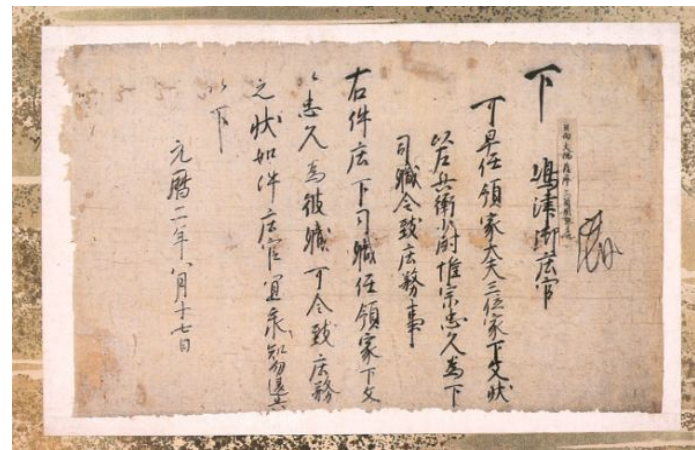 下 嶋津御庄官
可早任領家大夫三位家下文状
以左兵衛少尉惟宗忠久為下
司職令致庄務事
右件庄下司職任領家下文
以忠久為彼職可令致庄務
之状如件庄官宜承知勿違失
以下
元暦二年八月十七日